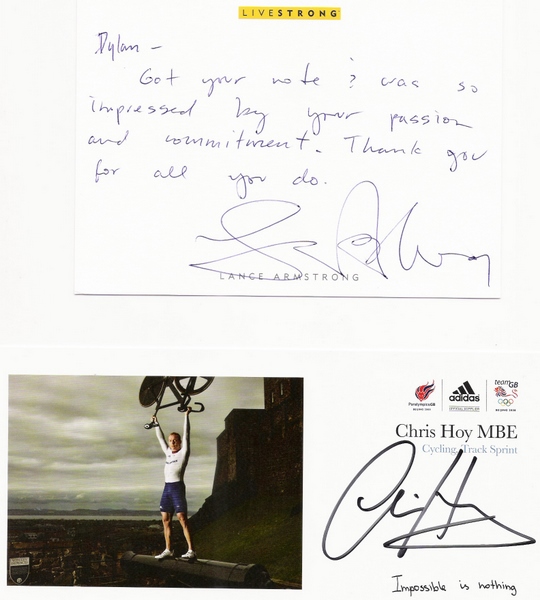 LIVESTRONG
Dylan -
Got your note & was so
impressed by your passion
and commitment. Thank you
for all you do.
LANCE ARMSTRONG
ParalympicsGB
adidas
OFFICIAL SUPPLIER
teamGB
Chris Hoy MBE
Cycling, Track Sprint
Impossible is nothing